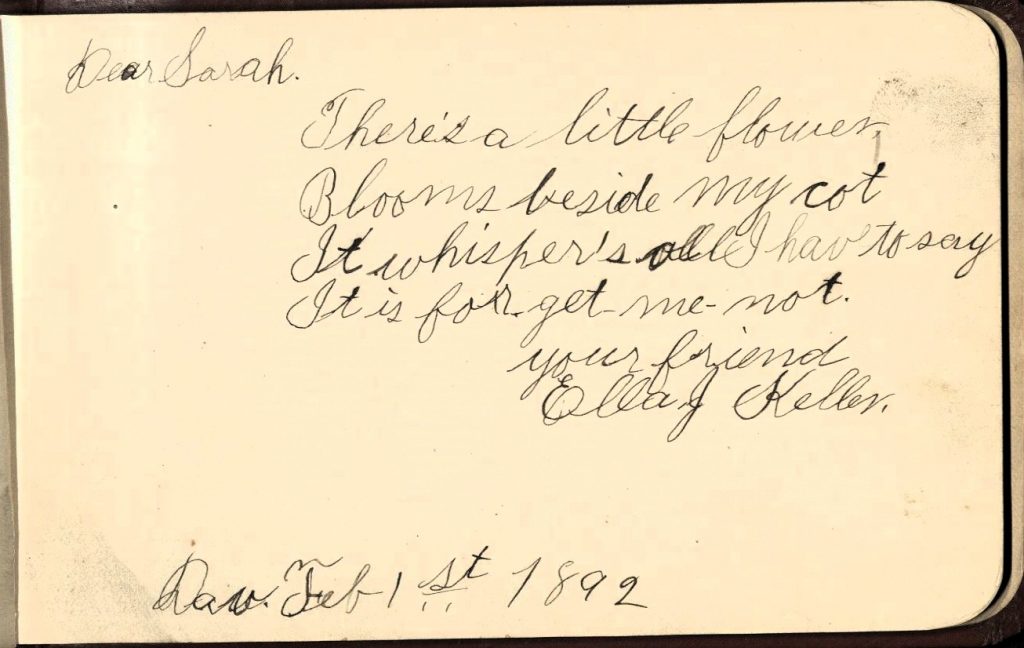 Dear Sarah.
There's a little flower,
Blooms beside my cot
It whisper's all I hav to say
It is for-get-me-not.
your friend
Ella J Keller.
Dav. Feb 1st 1892